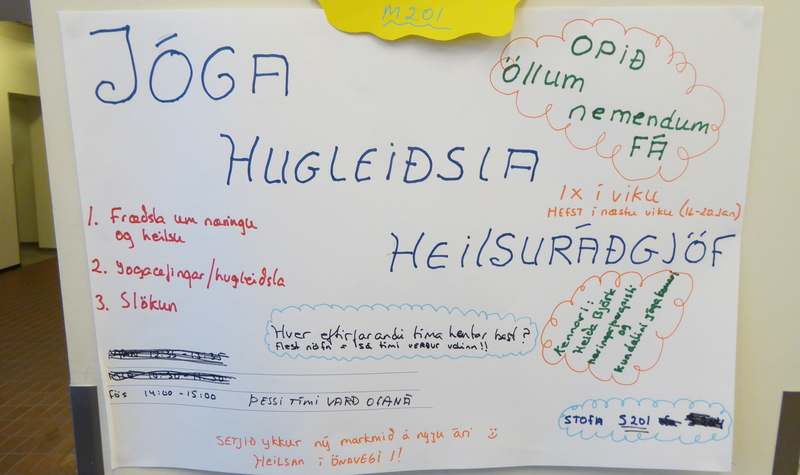 M201
JÓGA
OPIÐ
öllum
nemendum
FÁ
HUGLEIÐSLA
1X í viku
HEFST í næstu viku (16-20 Jan)
HEILSURÁÐGJÖF
1. Fræðsla um næringu
og heilsu
2. yogaæfingar/hugleiðsla
3. Slökun
Kennari:
Heiða Björk
næringarþerapisti
og
kundalini jóga
Hver eftirfarandi tíma hentar best?
Flest nöfn = sá tími verður valinn!!
fös 14:00 - 15:00 ÞESSI TÍMI VARÐ OFANÁ
STOFA S201
SETJIÐ ykkur ný markmið á nyju ári
HEILSAN í ÖNDVEGI !!